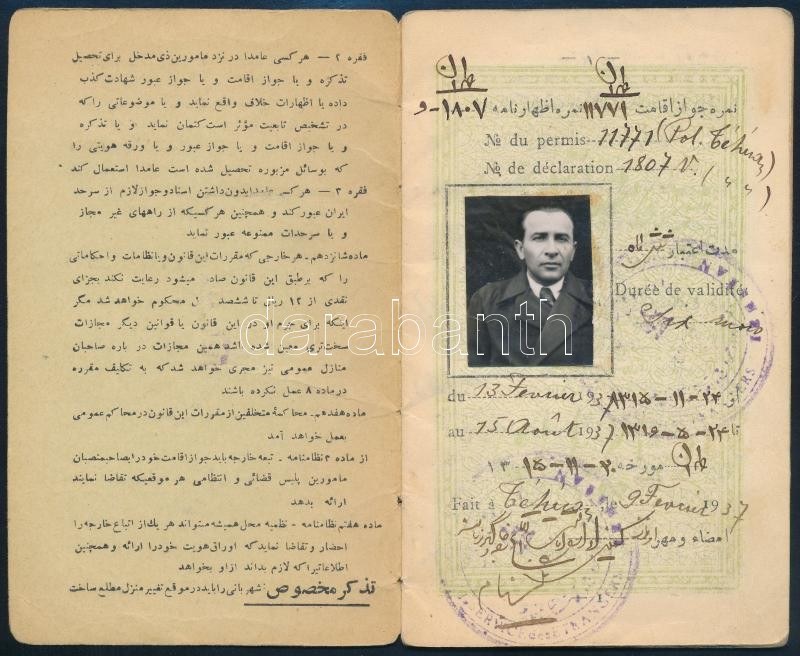 فقره ۲ — هر کسی عامدا در نزد مامورین ذی مدخل برای تحصیل
تذکره و یا جواز اقامت و یا جواز عبور شهادت کذب
داده یا اظهارات خلاف واقع نماید و یا موضوعاتی را که
در تشخیص تابعیت مؤثر است کتمان نماید و یا تذکره
و یا جواز اقامت و یا جواز عبور و یا ورقه هویتی را
که بوسائل مزبوره تحصیل شده است عامدا استعمال کند
فقره ۳ — هر کس عامدا بدون داشتن اسناد و جواز لازم از سرحد
ایران عبور کند و همچنین هر کسیکه از راههای غیر مجاز
و یا سرحدات ممنوعه عبور نماید
ماده شانزدهم - هر خارجی که مقررات این قانون و یا نظامات و احکاماتی
را که بر طبق این قانون صادر میشود رعایت نکند بجزای
نقدی از ۱۲ ریال تا ششصد ریال محکوم خواهد شد مگر
اینکه برای جرم او در این قانون یا قوانین دیگر مجازات
سخت‌تری معین شده باشد همین مجازات در باره صاحبان
منازل عمومی نیز مجری خواهد شد که به تکالیف مقرره
در ماده ۸ عمل نکرده باشند
ماده هفدهم - محاکمهٔ متخلفین از مقررات این قانون در محاکم عمومی
بعمل خواهد آمد
از ماده ۶ نظامنامه - تبعه خارجه باید جواز اقامت خود را بصاحبمنصبان
مامورین پلیس قضائی و انتظامی هر موقعیکه تقاضا نمایند
ارائه بدهد
ماده هفتم نظامنامه - نظمیه محل همیشه میتواند هر یک از اتباع خارجه را
احضار و تقاضا نماید که اوراق هویت خود را ارائه و همچنین
اطلاعاتیرا که لازم بداند از او بخواهد
تذکر مخصوص : شهربانی را باید در موقع تغییر منزل مطلع ساخت
نمره جواز اقامت ۱۱۷۷۱ نمره اظهار نامه ۱۸۰۷-و
№ du permis 11771 (Pol. Téhéran)
№ de déclaration 1807 V. ( " " )
مدت اعتبار شش ماه
Durée de validité
Six mois
du 13 Fevrier 1937 از ۲۴-۱۱-۱۳۱۵
au 15 Août 1937 تا ۲۴-۵-۱۳۱۶
مورخه ۲۰-۱۱-۱۳۱۵
Fait à Téhéran le 9 Fevrier 1937
امضاء و مهر
1
SERVICE des ETRANGERS
www.darabanth.com